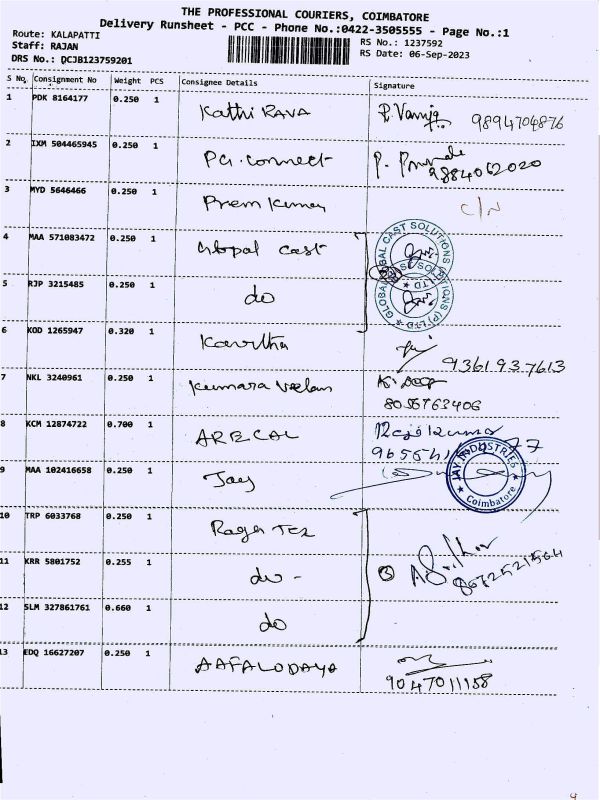 THE PROFESSIONAL COURIERS, COIMBATORE
Delivery Runsheet - PCC - Phone No.:0422-3505555 - Page No.:1
Route: KALAPATTI
Staff: RAJAN
DRS No.: DCJB123759201
RS No.: 1237592
RS Date: 06-Sep-2023
S No. Consignment No Weight PCS Consignee Details Signature
1 PDK 8164177 0.250 1 Kathi RAVA 9894704876
2 IXM 504465945 0.250 1 PG.connect 9884062020
3 MYD 5646466 0.250 1 Prem Kumar C/N
4 MAA 571083472 0.250 1 Global Cast GLOBAL CAST SOLUTIONS (P) LTD
5 RJP 3215485 0.250 1 do GLOBAL CAST SOLUTIONS (P) LTD
6 KOD 1265947 0.320 1 Kavitha 9361937613
7 NKL 3240961 0.250 1 Kumara Velan 8056763406
8 KCM 12874722 0.700 1 ARECAL Rajkumar
9 MAA 102416658 0.250 1 Jay JAY INDUSTRIES Coimbatore
10 TRP 6033768 0.250 1 Raga Tex
11 KRR 5801752 0.255 1 do - 3
12 SLM 327861761 0.660 1 do
13 EDQ 16627207 0.250 1 AAFALODAYA 9047011158